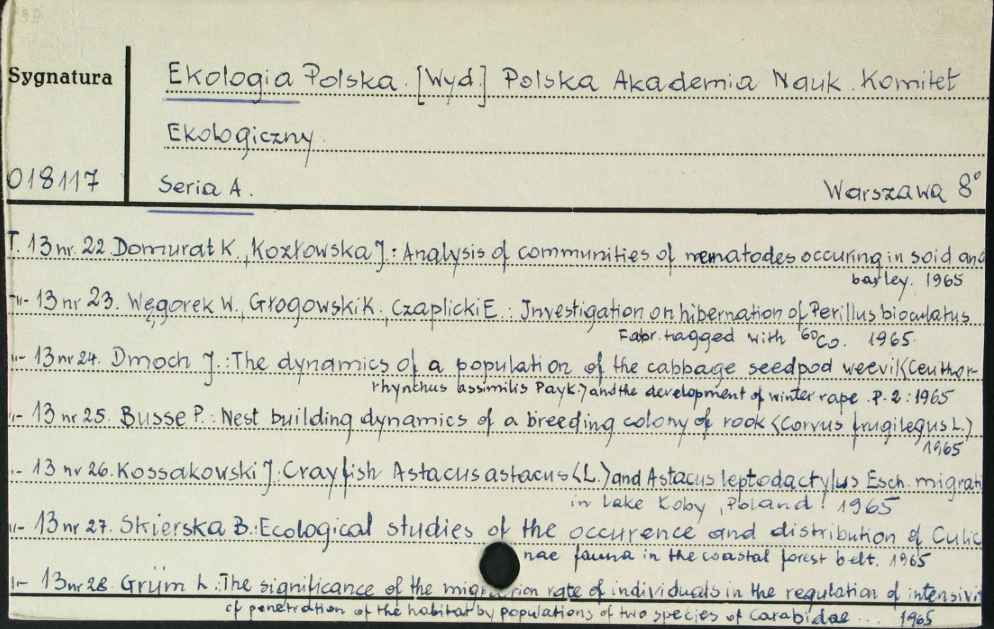 Sygnatura
Ekologia Polska. [Wyd.] Polska Akademia Nauk. Komitet
Ekologiczny.
018117
Seria A.
Warszawa 8°
T. 13 nr. 22 Domurat K., Kozłowska J.: Analysis of communities of nematodes occuring in soid and
barley. 1965
-"- 13 nr 23. Węgorek W., Głogowski K., Czaplicki E.: Investigation on hibernation of Perillus bioculatus
Fabr. tagged with ⁶⁰Co. 1965.
-"- 13 nr 24. Dmoch J.: The dynamics of a population of the cabbage seedpod weevil (Ceuthor-
rhynchus assimilis Payk.) and the development of winter rape. P. 2: 1965
-"- 13 nr 25. Busse P.: Nest building dynamics of a breeding colony of rook (Corvus frugilegus L.)
1965
-"- 13 nr 26. Kossakowski J.: Crayfish Astacus astacus (L.) and Astacus leptodactylus Esch. migrati
in Lake Koby, Poland. 1965
-"- 13 nr 27. Skierska B.: Ecological studies of the occurence and distribution of Culic
nae fauna in the coastal forest belt. 1965
-"- 13 nr 28. Grüm L.: The significance of the migration rate of individuals in the regulation of intensivi
of penetration of the habitat by populations of two species of Carabidae ... 1965